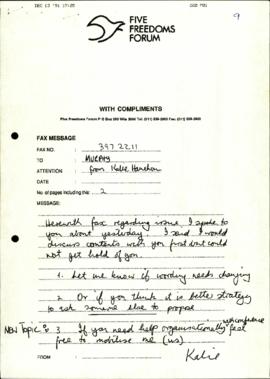 DEC 13 '91 17:25
9
FIVE
FREEDOMS
FORUM
WITH COMPLIMENTS
FAX MESSAGE
FAX NO. : 397 2211
TO : MURPHY
ATTENTION : from Kalie Hanekom
DATE :
No of pages including this : 2
MESSAGE:
Herewith fax regarding I spoke to
you about yesterday. I said I would
discuss contents with you first but could
not get hold of you.
1. Let me know if wording needs changing
2 Or if you think it is better strategy
to ask someone else to propose
NEW Topic: 3 If you need help organisationally with conference feel
free to mobilise me (us)
FROM :